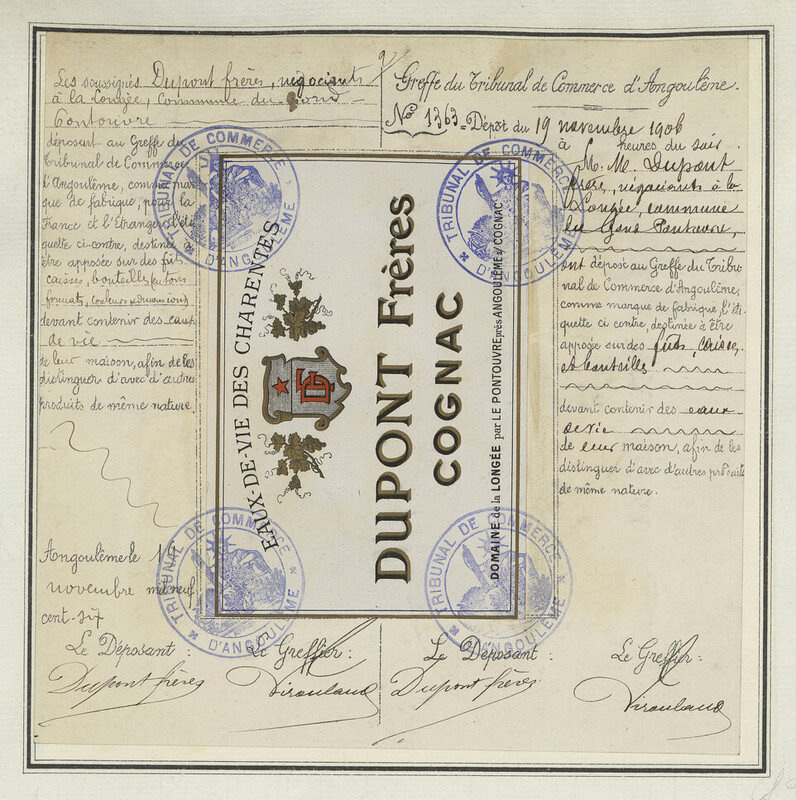 Les soussignés Dupont frères, négociants
à la Longée, Commune du Gond-
Pontouvre
déposent au Greffe du
Tribunal de Commerce
d'Angoulême, comme mar
que de fabrique, pour la
France et l'Etranger, l'éti
quette ci-contre, destinée à
être apposée sur des fûts
caisses, bouteilles,
formats, couleurs et dimensions
devant contenir des eaux-
de-vie
de leur maison, afin de les
distinguer d'avec d'autres
produits de même nature.
Angoulême le
novembre mil neuf
cent-six
Le Déposant : Le Greffier :
Dupont frères
EAUX-DE-VIE DES CHARENTES
DF
DUPONT Frères
COGNAC
DOMAINE de la LONGÉE par LE PONTOUVRE près ANGOULÊME s/ COGNAC
TRIBUNAL DE COMMERCE
D'ANGOULEME
TRIBUNAL DE COMMERCE
D'ANGOULEME
TRIBUNAL DE COMMERCE
D'ANGOULEME
TRIBUNAL DE COMMERCE
D'ANGOULEME
Greffe du Tribunal de Commerce d'Angoulême.
No 1363 Dépôt du 19 novembre 1906
à heures du soir.
M. M. Dupont
frères, négociants à la
Longée, commune
du Gond Pontouvre,
ont déposé au Greffe du Tribu
nal de Commerce d'Angoulême,
comme marque de fabrique, l'éti
quette ci contre, destinée à être
apposée sur des fûts, caisses,
et bouteilles
devant contenir des eaux-
de-vie
de leur maison, afin de les
distinguer d'avec d'autres produits
de même nature.
Le Déposant : Le Greffier :
Dupont frères